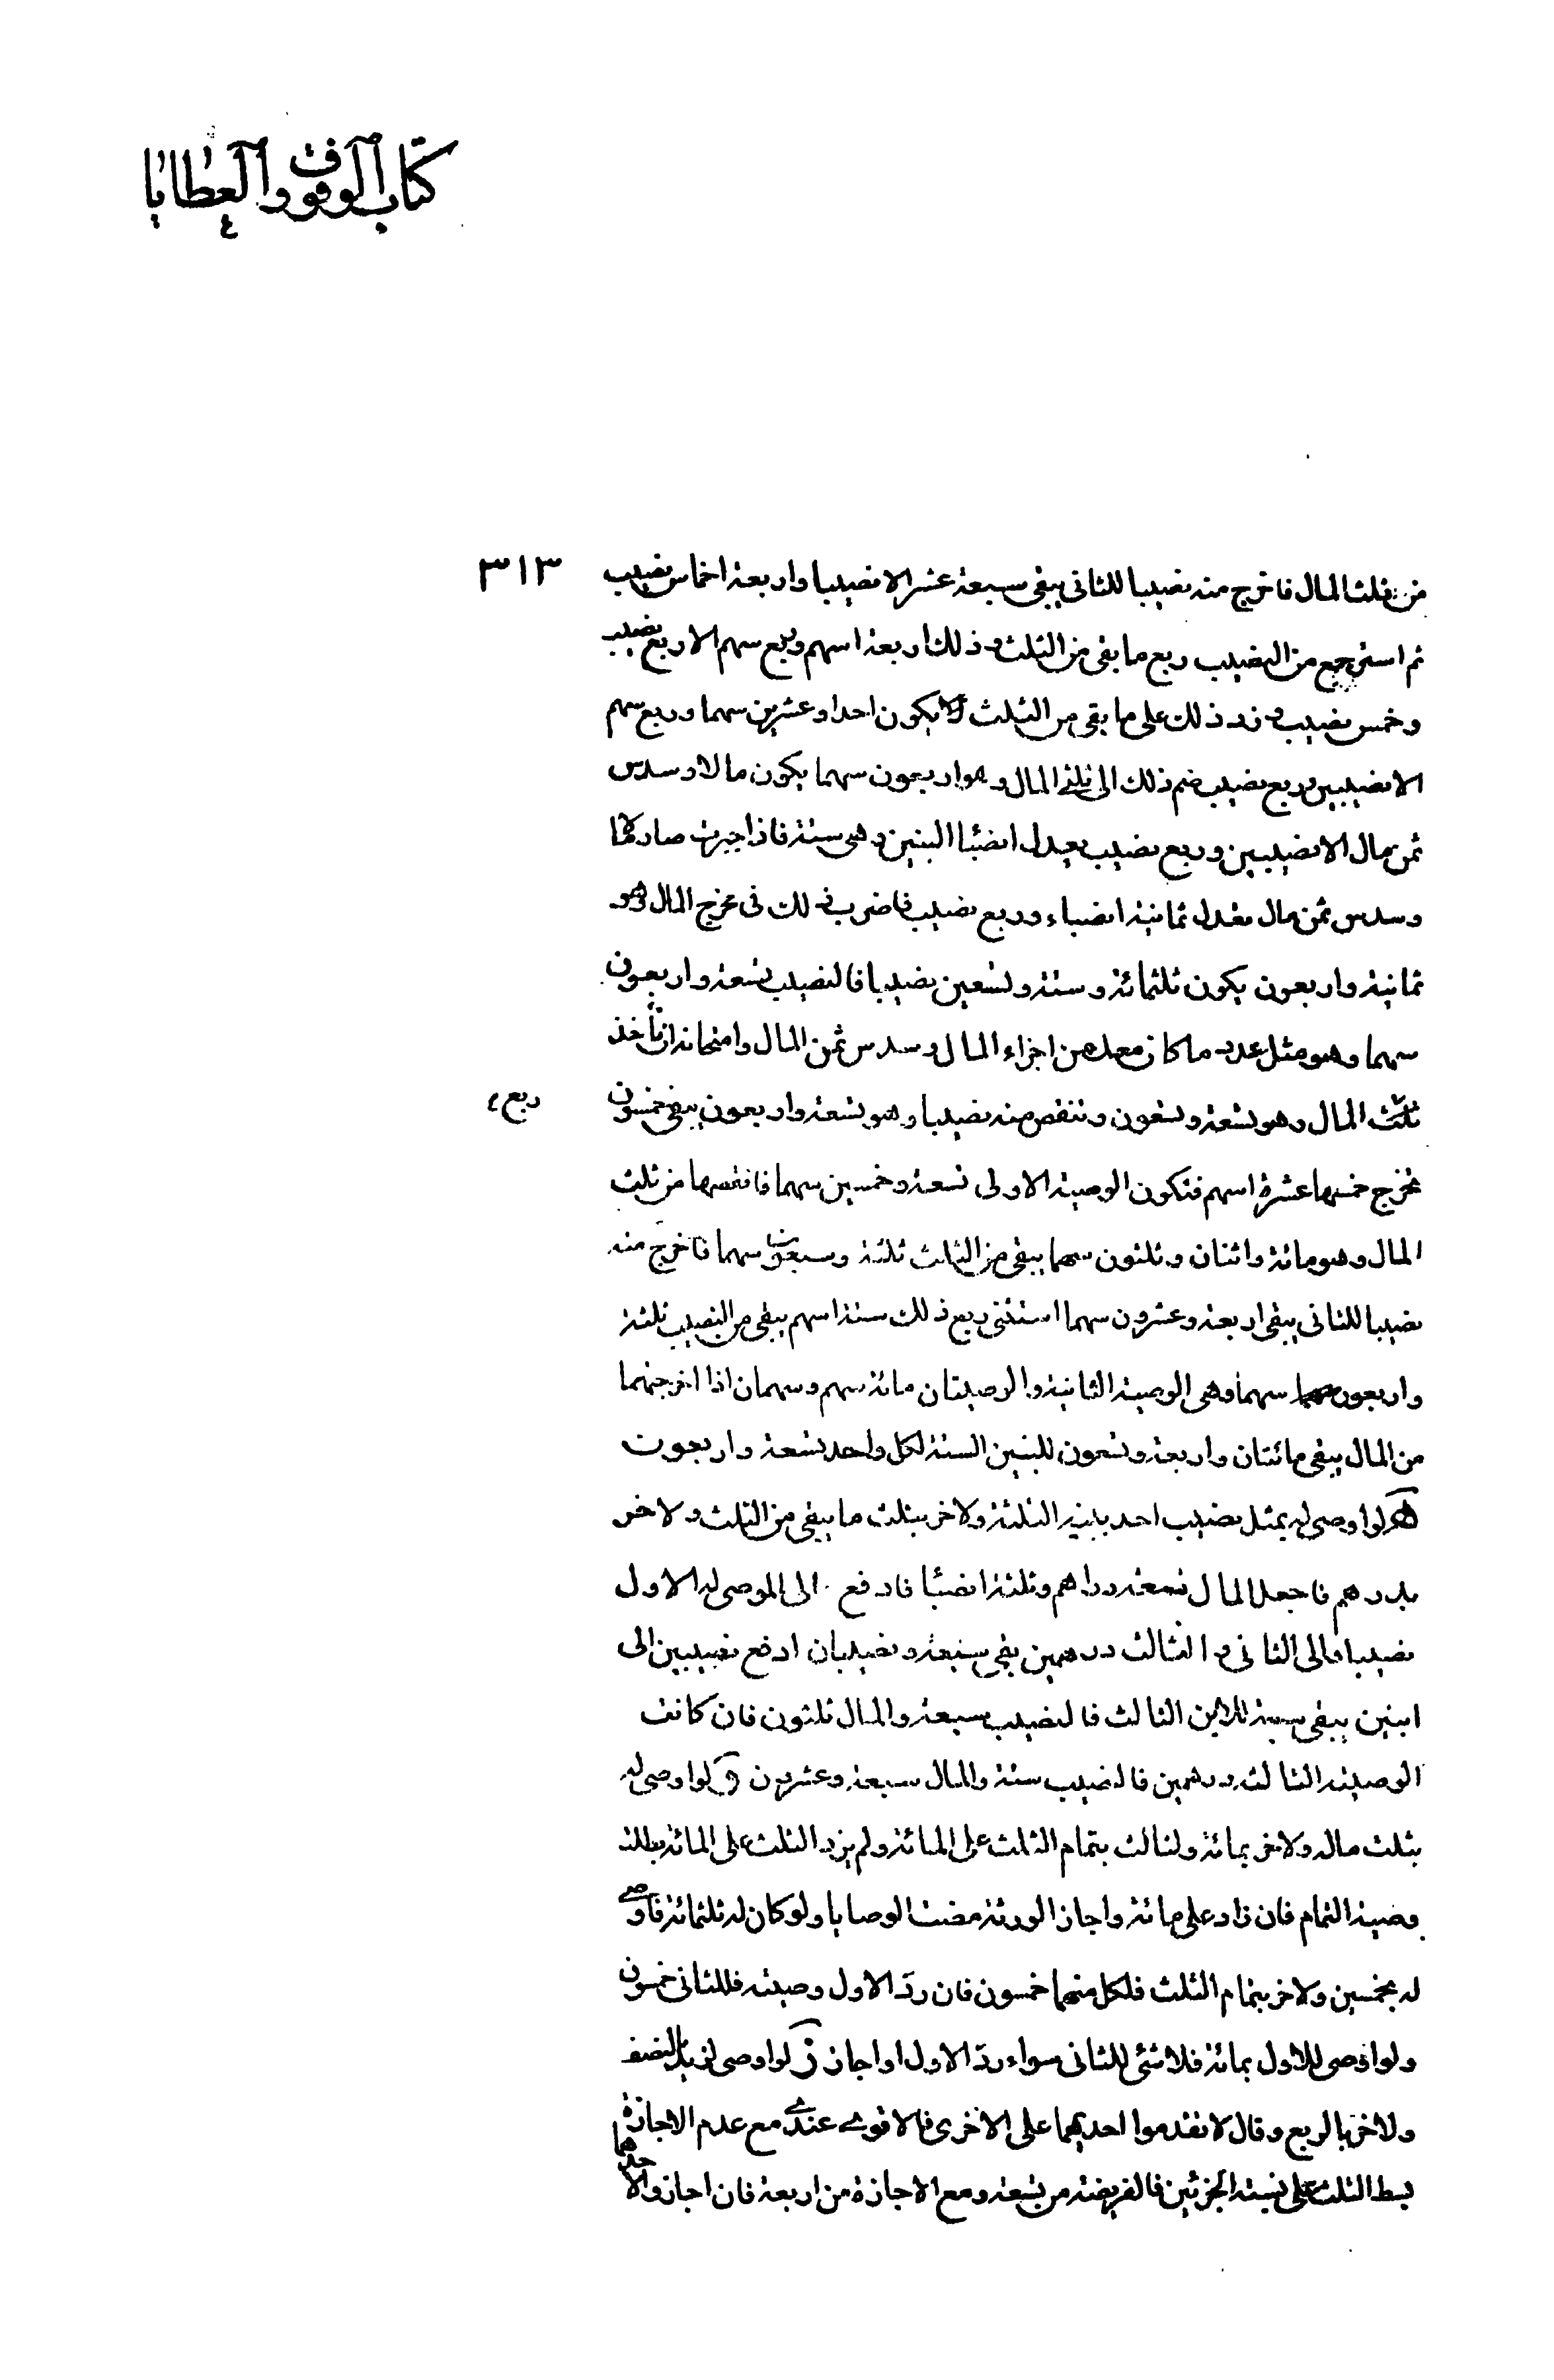 كتاب الوقوف والعطايا
٣١٣
من ثلث المال فاخرج منه نصيبا للثانى يبقى سبعة عشر الا نصيبا واربعة اخماس نصيب
ثم استرجع من النصيب ربع ما بقى من الثلث وذلك اربعة اسهم وربع سهم الا ربع نصيب
وخمس نصيب وزد ذلك على ما بقى من الثلث يكون احدا وعشرين سهما وربع سهم
الا نصيبين وربع نصيب ضم ذلك الى ثلثى المال وهو اربعون سهما يكون مالا وسدس
ثمن مال الا نصيبين وربع نصيب يعدل انصباء البنين وهى ستة فاذا جبرت صار مالا
وسدس ثمن مال تعدل ثمانية انصباء وربع نصيب فاضرب ذلك فى مخرج المال وهو
ثمانية واربعون يكون ثلثمائة وستة وتسعين نصيبا فالنصيب تسعة واربعون
سهما وهو مثل عدد ما كان معك من اجزاء المال وسدس ثمن المال وامتحانه ان تأخذ
ثلث المال وهو تسعة وتسعون وتنقص منه نصيبا وهو تسعة واربعون يبقى خمسون
ربع
تخرج خمسها عشرة اسهم فتكون الوصية الاولى تسعة وخمسين سهما فانقصها من ثلث
المال وهو مائة واثنان وثلثون سهما يبقى من الثلث ثلثة وسبعون سهما فاخرج منه
نصيبا للثانى يبقى اربعة وعشرون سهما استثنى ربع ذلك ستة اسهم يبقى من النصيب ثلثة
واربعون سهما وهى الوصية الثانية والوصيتان مائة سهم وسهمان اذا اخرجتهما
من المال يبقى مائتان واربعة وتسعون للبنين الستة لكل واحد تسعة واربعون
ه لو اوصى له بمثل نصيب احد بنيه الثلثة ولاخر بثلث ما يبقى من الثلث ولاخر
بدرهم فاجعل المال تسعة دراهم وثلثة انصباء فادفع الى الموصى له الاول
نصيبا والى الثانى والثالث درهمين بقى سبعة ونصيبان ادفع نصيبين الى
ابنين يبقى سبعة للابن الثالث فالنصيب سبعة والمال ثلثون فان كانت
الوصية الثالثة درهمين فالنصيب ستة والمال سبعة وعشرون و لو اوصى له
بثلث ماله ولاخر بمائة ولثالث بتمام الثلث على المائة ولم يزد الثلث على المائة بطلت
وصية التمام فان زاد على مائة واجاز الورثة مضت الوصايا ولو كان له ثلثمائة فاوصى
له بخمسين ولاخر بتمام الثلث فلكل منهما خمسون فان ردّ الاول وصيته فللثانى خمسون
ولو اوصى للاول بمائة فلا شئ للثانى سواء ردّ الاول او اجاز ز لو اوصى له بالنصف
ولاخر بالربع وقال لا تقدموا احديهما على الاخرى فالاقوى عندى مع عدم الاجازة
بسط الثلث على نسبة الجزئين فالفريضة من تسعة ومع الاجازة من اربعة فان اجازوا لاحدهما